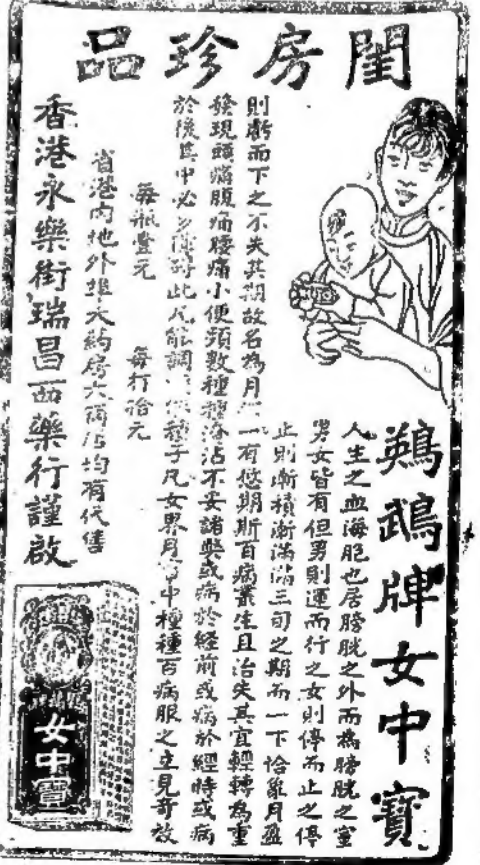 閨房珍品
鵝鵡牌女中寶
人生之血海胞也居膀胱之外而為膀胱之室
男女皆有但男則運而行之女則停而止之停
止則漸積漸滿滿三旬之期而一下恰龍月盈
則虧而下之不失其期故名為月 一有愆期斯百病叢生且治失其宜輕轉為重
發現頭痛腹痛腰痛小便頻數種種淹沾不妥諸獘或病於經前或病於經時或病
於後其中必多 此凡能調 種子凡女界月宮中種種百病服之立見奇效
每瓶壹元 每打拾元
省港內地外埠大藥房大商店均有代售
香港永樂街瑞昌西藥行謹啟
女中寶